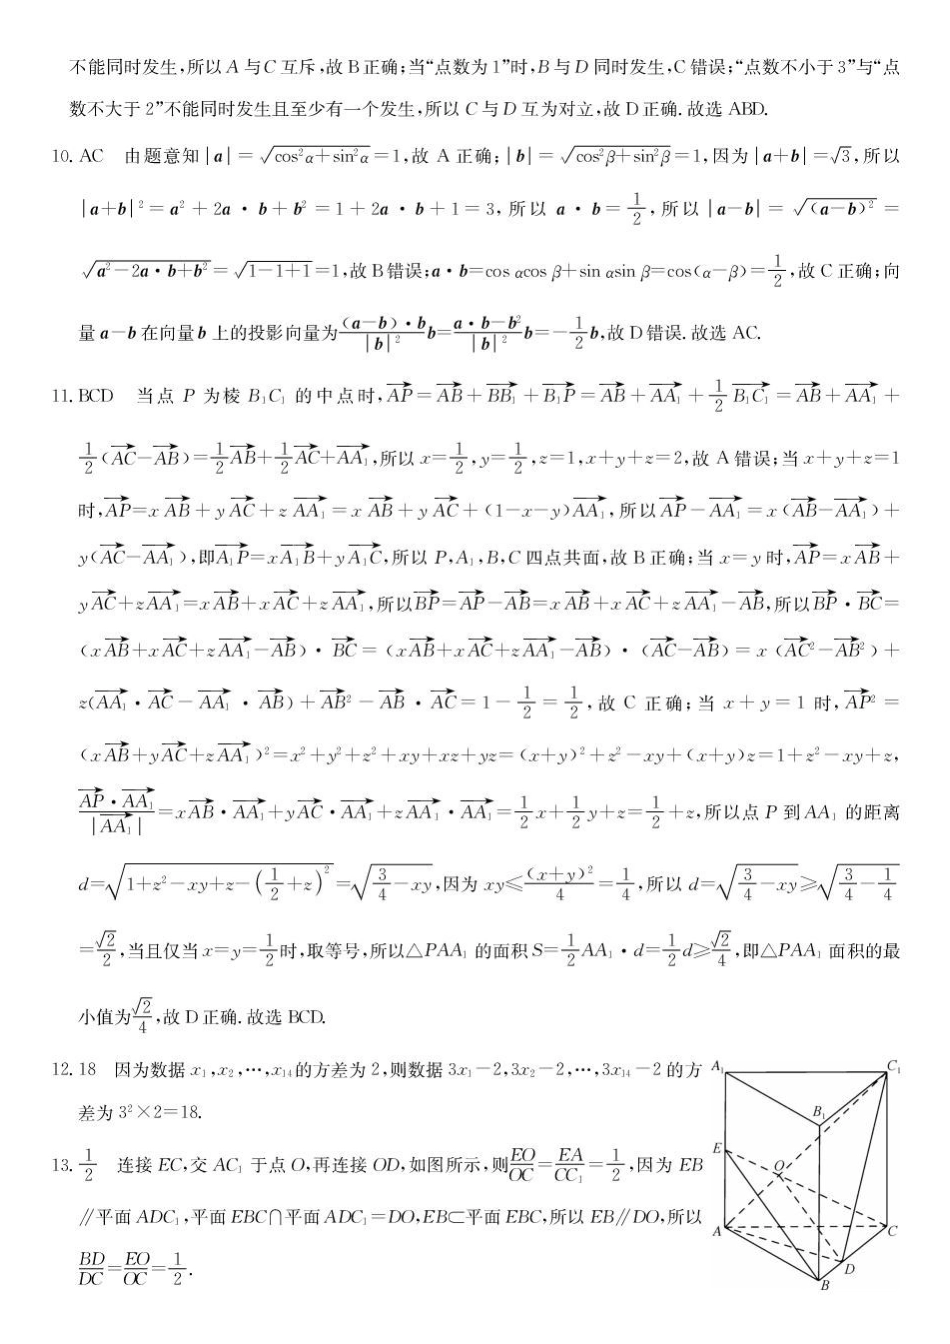 不能同时发生,所以 A 与 C 互斥,故 B 正确;当“点数为 1”时,B 与 D 同时发生,C 错误;“点数不小于 3”与“点
数不大于 2”不能同时发生且至少有一个发生,所以 C 与 D 互为对立,故 D 正确. 故选 ABD.
10. AC 由题意知|a|=√(cos²α+sin²α)=1,故 A 正确;|b|=√(cos²β+sin²β)=1,因为|a+b|=√3,所以
|a+b|²=a²+2a·b+b²=1+2a·b+1=3,所以 a·b=1/2,所以|a−b|=√((a−b)²)=
√(a²−2a·b+b²)=√(1−1+1)=1,故 B 错误;a·b=cos αcos β+sin αsin β=cos(α−β)=1/2,故 C 正确;向
量 a−b 在向量 b 上的投影向量为((a−b)·b)/|b|² b=(a·b−b²)/|b|² b=−1/2 b,故 D 错误. 故选 AC.
11. BCD 当点 P 为棱 B₁C₁ 的中点时,AP→=AB→+BB₁→+B₁P→=AB→+AA₁→+1/2 B₁C₁→=AB→+AA₁→+
1/2(AC→−AB→)=1/2 AB→+1/2 AC→+AA₁→,所以 x=1/2,y=1/2,z=1,x+y+z=2,故 A 错误;当 x+y+z=1
时,AP→=x AB→+y AC→+z AA₁→=x AB→+y AC→+(1−x−y)AA₁→,所以 AP→−AA₁→=x(AB→−AA₁→)+
y(AC→−AA₁→),即 A₁P→=x A₁B→+y A₁C→,所以 P,A₁,B,C 四点共面,故 B 正确;当 x=y 时,AP→=x AB→+
y AC→+z AA₁→=x AB→+x AC→+z AA₁→,所以 BP→=AP→−AB→=x AB→+x AC→+z AA₁→−AB→,所以 BP→·BC→=
(x AB→+x AC→+z AA₁→−AB→)·BC→=(x AB→+x AC→+z AA₁→−AB→)·(AC→−AB→)=x(AC→²−AB→²)+
z(AA₁→·AC→−AA₁→·AB→)+AB→²−AB→·AC→=1−1/2=1/2,故 C 正确;当 x+y=1 时,AP→²=
(x AB→+y AC→+z AA₁→)²=x²+y²+z²+xy+xz+yz=(x+y)²+z²−xy+(x+y)z=1+z²−xy+z,
(AP→·AA₁→)/|AA₁→|=x AB→·AA₁→+y AC→·AA₁→+z AA₁→·AA₁→=1/2 x+1/2 y+z=1/2+z,所以点 P 到 AA₁ 的距离
d=√(1+z²−xy+z−(1/2+z)²)=√(3/4−xy),因为 xy≤(x+y)²/4=1/4,所以 d=√(3/4−xy)≥√(3/4−1/4)
=√2/2,当且仅当 x=y=1/2 时,取等号,所以△PAA₁ 的面积 S=1/2 AA₁·d=1/2 d≥√2/4,即△PAA₁ 面积的最
小值为√2/4,故 D 正确. 故选 BCD.
12. 18 因为数据 x₁,x₂,…,x₁₄的方差为 2,则数据 3x₁−2,3x₂−2,…,3x₁₄−2 的方
差为 3²×2=18.
13. 1/2 连接 EC,交 AC₁ 于点 O,再连接 OD,如图所示,则 EO/OC=EA/CC₁=1/2,因为 EB
∥平面 ADC₁,平面 EBC∩平面 ADC₁=DO,EB⊂平面 EBC,所以 EB∥DO,所以
BD/DC=EO/OC=1/2.
A₁
C₁
B₁
E
O
A
C
D
B